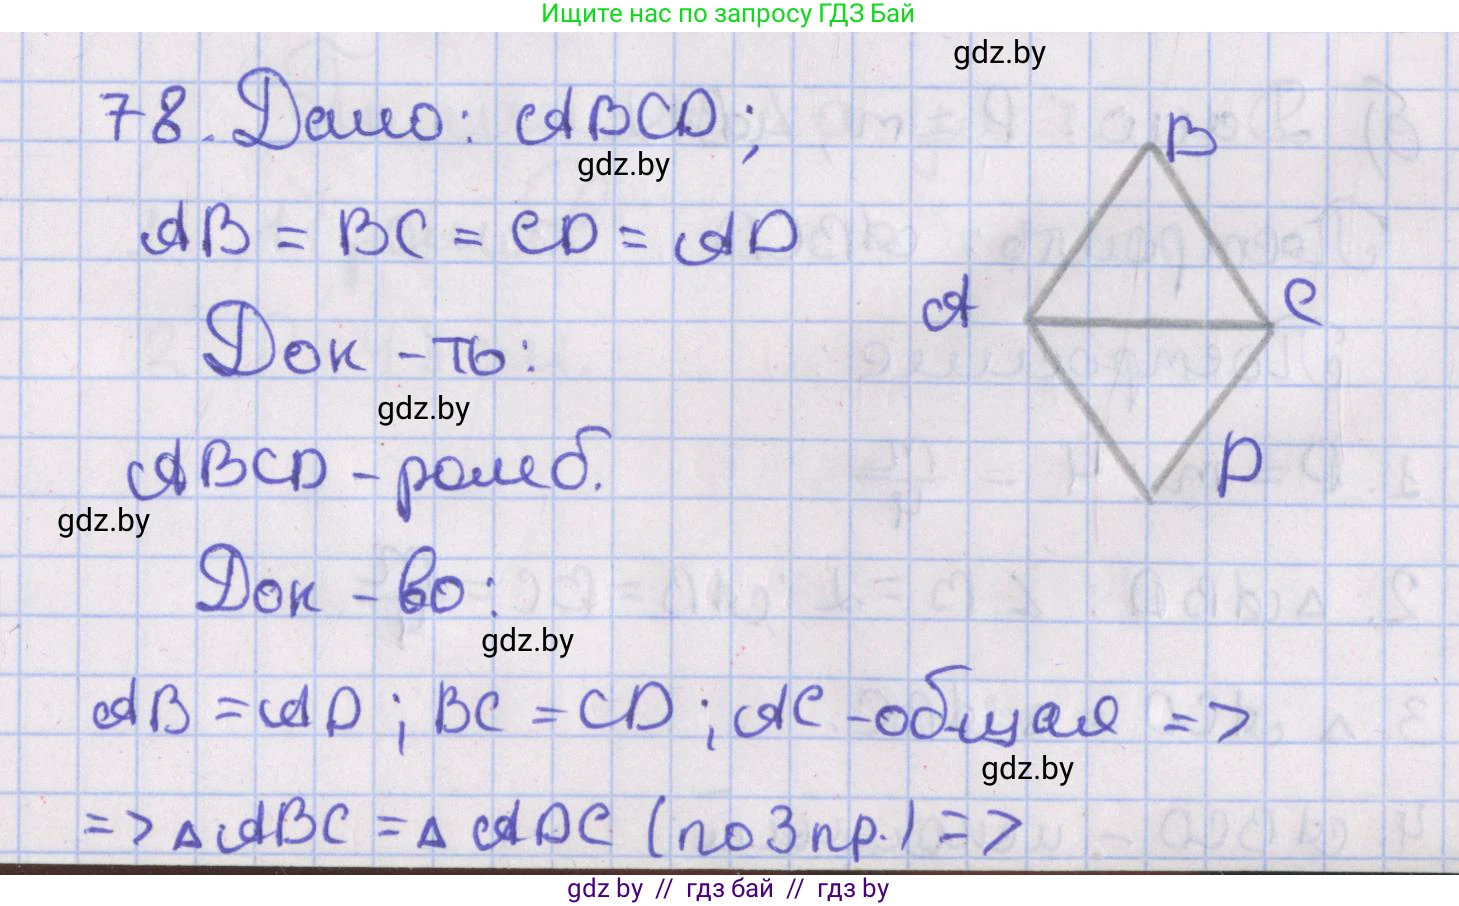 Ищите нас по запросу ГДЗ Бай
gdz.by
78. Дано: ABCD;
gdz.by
B
AB = BC = CD = AD
A
C
Док-ть:
gdz.by
ABCD - ромб.
D
gdz.by
Док-во:
gdz.by
AB = AD; BC = CD; AC - общая =>
gdz.by
=> △ ABC = △ ADC (по 3 пр.) =>
gdz by // гдз бай // гдз by